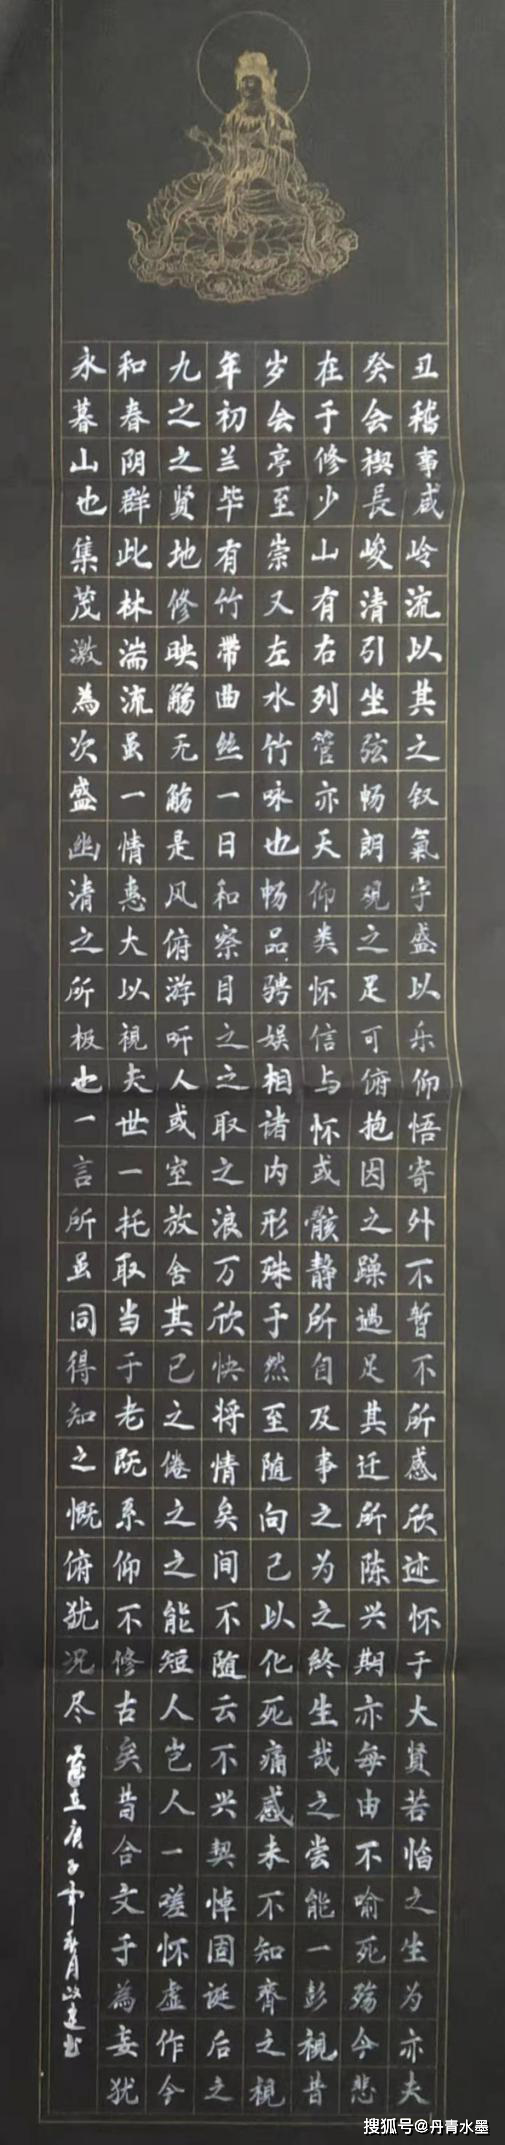 永和九年岁在癸丑
暮春之初会于会稽
山阴之兰亭修禊事
也群贤毕至少長咸
集此地有崇山峻岭
茂林修竹又有清流
激湍映带左右引以
為流觞曲水列坐其
次虽无丝竹管弦之
盛一觞一咏亦畅叙
幽情是日也天朗氣
清惠风和畅仰观宇
之大俯察品类之盛
所以游目骋怀足以
极視听之娱信可乐
也夫人之相与俯仰
一世或取诸怀抱悟
言一室之内或因寄
所托放浪形骸之外
虽取舍万殊静躁不
同当其欣于所遇暂
得于已快然自足不
知老之将至及其所
之既倦情随事迁感
慨系之矣向之所欣
俯仰之间己为陈迹
犹不能不以之兴怀
况修短随化終期于
尽古人云死生亦大
矣岂不痛哉每賢
昔人兴感之由若
合一契未尝不临
文嗟悼不能喻之
于怀固知一死生
為虚诞齊彭殇为
妄作后之視今亦
犹今之視昔悲夫
庚子年秋月
搜狐号@丹青水墨